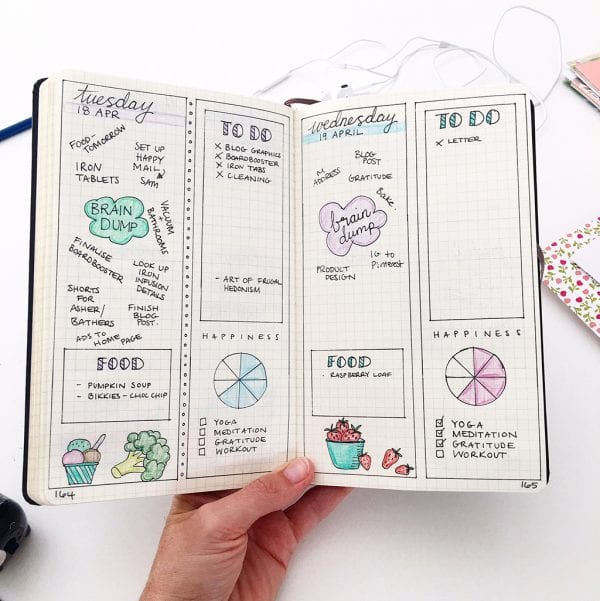 tuesday
18 APR
FOOD-
TOMORROW
SET UP
HAPPY
MAIL
IRON
TABLETS
SATN
BRAIN
DUMP
VACUUM +
BATHROOMS
FINALISE
BOARDBOOSTER
LOOK UP
IRON
INFUSION
DETAILS
SHORTS
FOR
ASHER/
BATHERS
FINISH
BLOG
POST.
ADS TO
HOME PAGE
FOOD
- PUMPKIN SOUP
- BIKKIES - CHOC CHIP
164
TO DO
X BLOG GRAPHICS
X BOARDBOOSTER
X IRON TABS
X CLEANING
- ART OF FRUGAL
HEDONISM
HAPPINESS
YOGA
MEDITATION
GRATITUDE
WORKOUT
wednesday
19 APRIL
BLOG
POST
M
ADDRESS
GRATITUDE
Bake.
brain
dump
IG to
Pinterest
PRODUCT
DESIGN
FOOD
- RASPBERRY LOAF
TO DO
X LETTER
HAPPINESS
YOGA
MEDITATION
GRATITUDE
WORKOUT
165